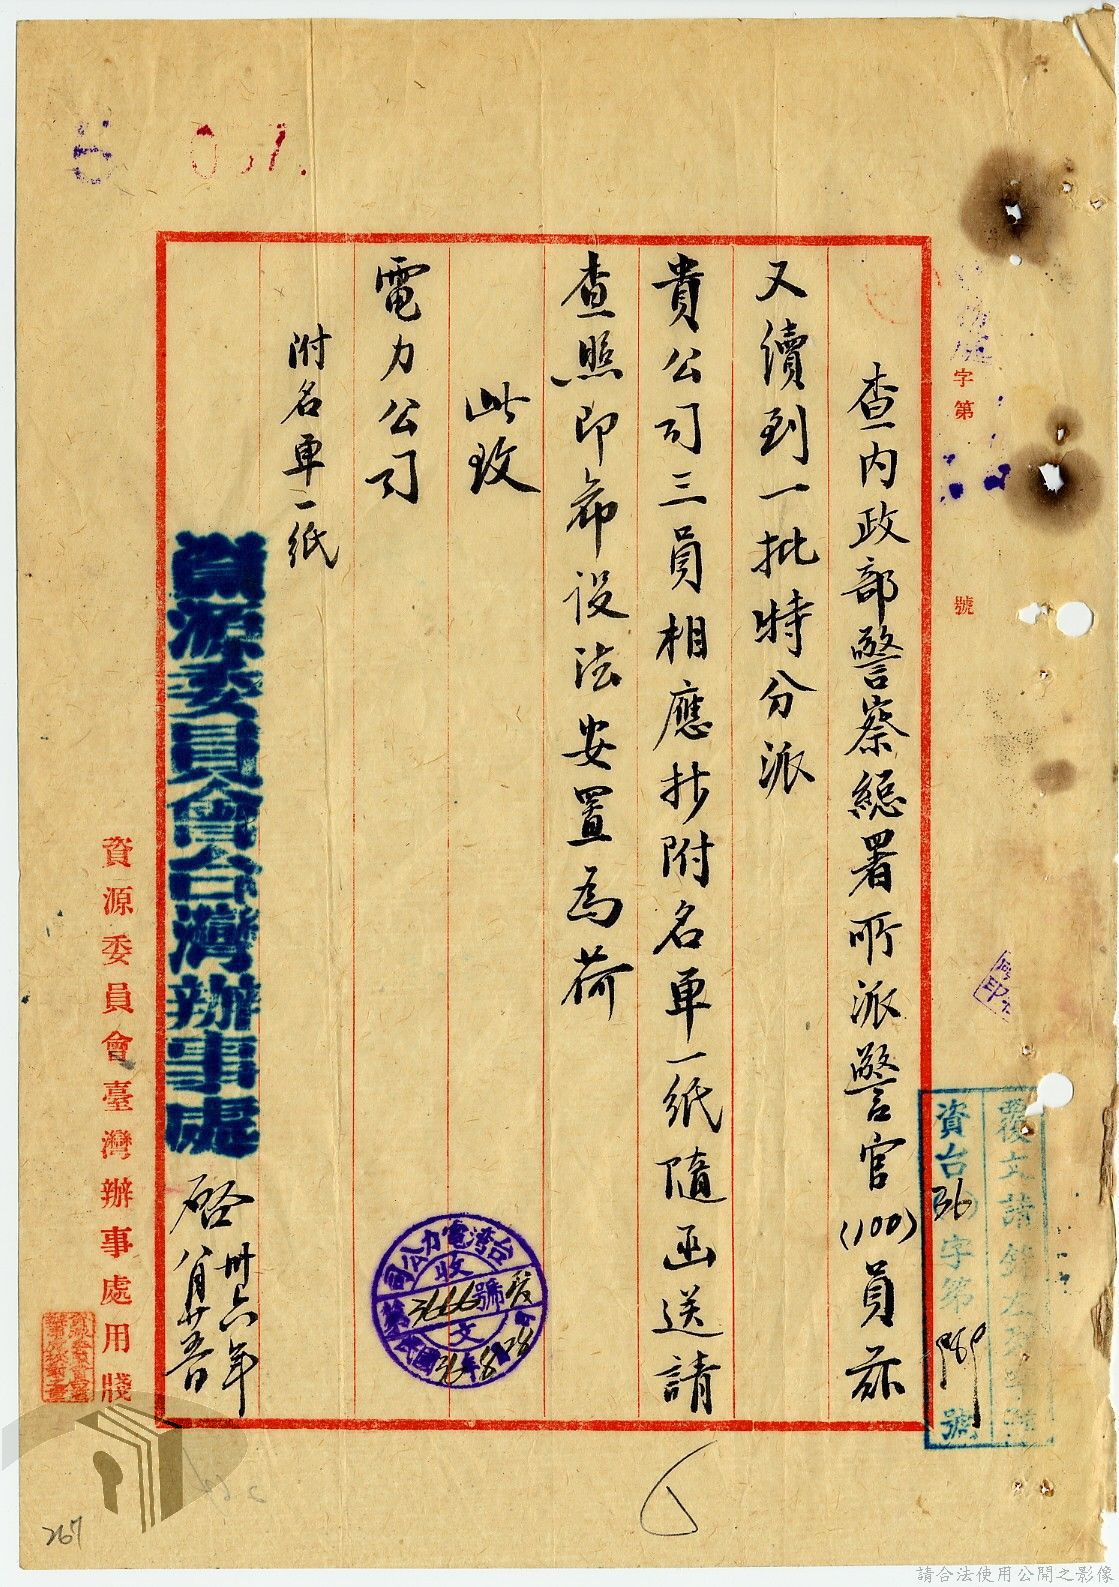 字第
號
查内政部警察總署所派警官(100)員茲
又續到一批特分派
貴公司三員相應抄附名單一紙隨函送請
查照即希設法安置為荷
此致
電力公司
附名單一紙
資源委員會台灣辦事處
啓
卅六年
八月廿五日
資源委員會臺灣辦事處用牋
資台36字第
號
台灣電力公司
收
第3666號
文
民國36年8月28日
267
請合法使用公開之影像